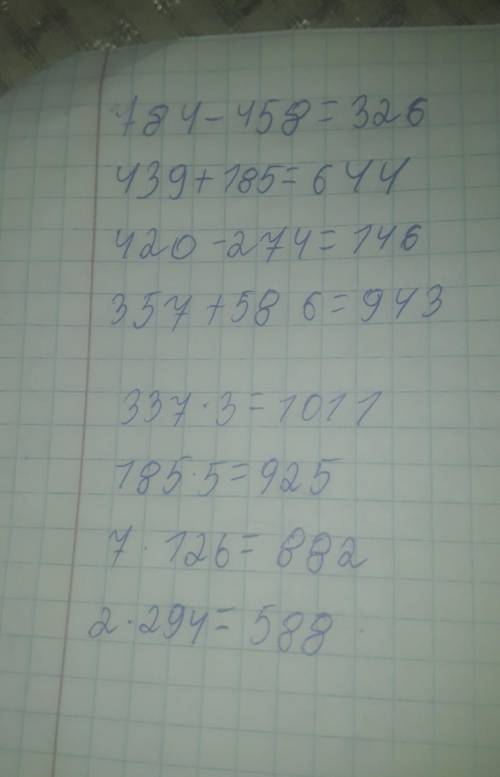 784-458=326
439+185=644
420-274=146
357+586=943
337·3=1011
185·5=925
7·126=882
2·294=588